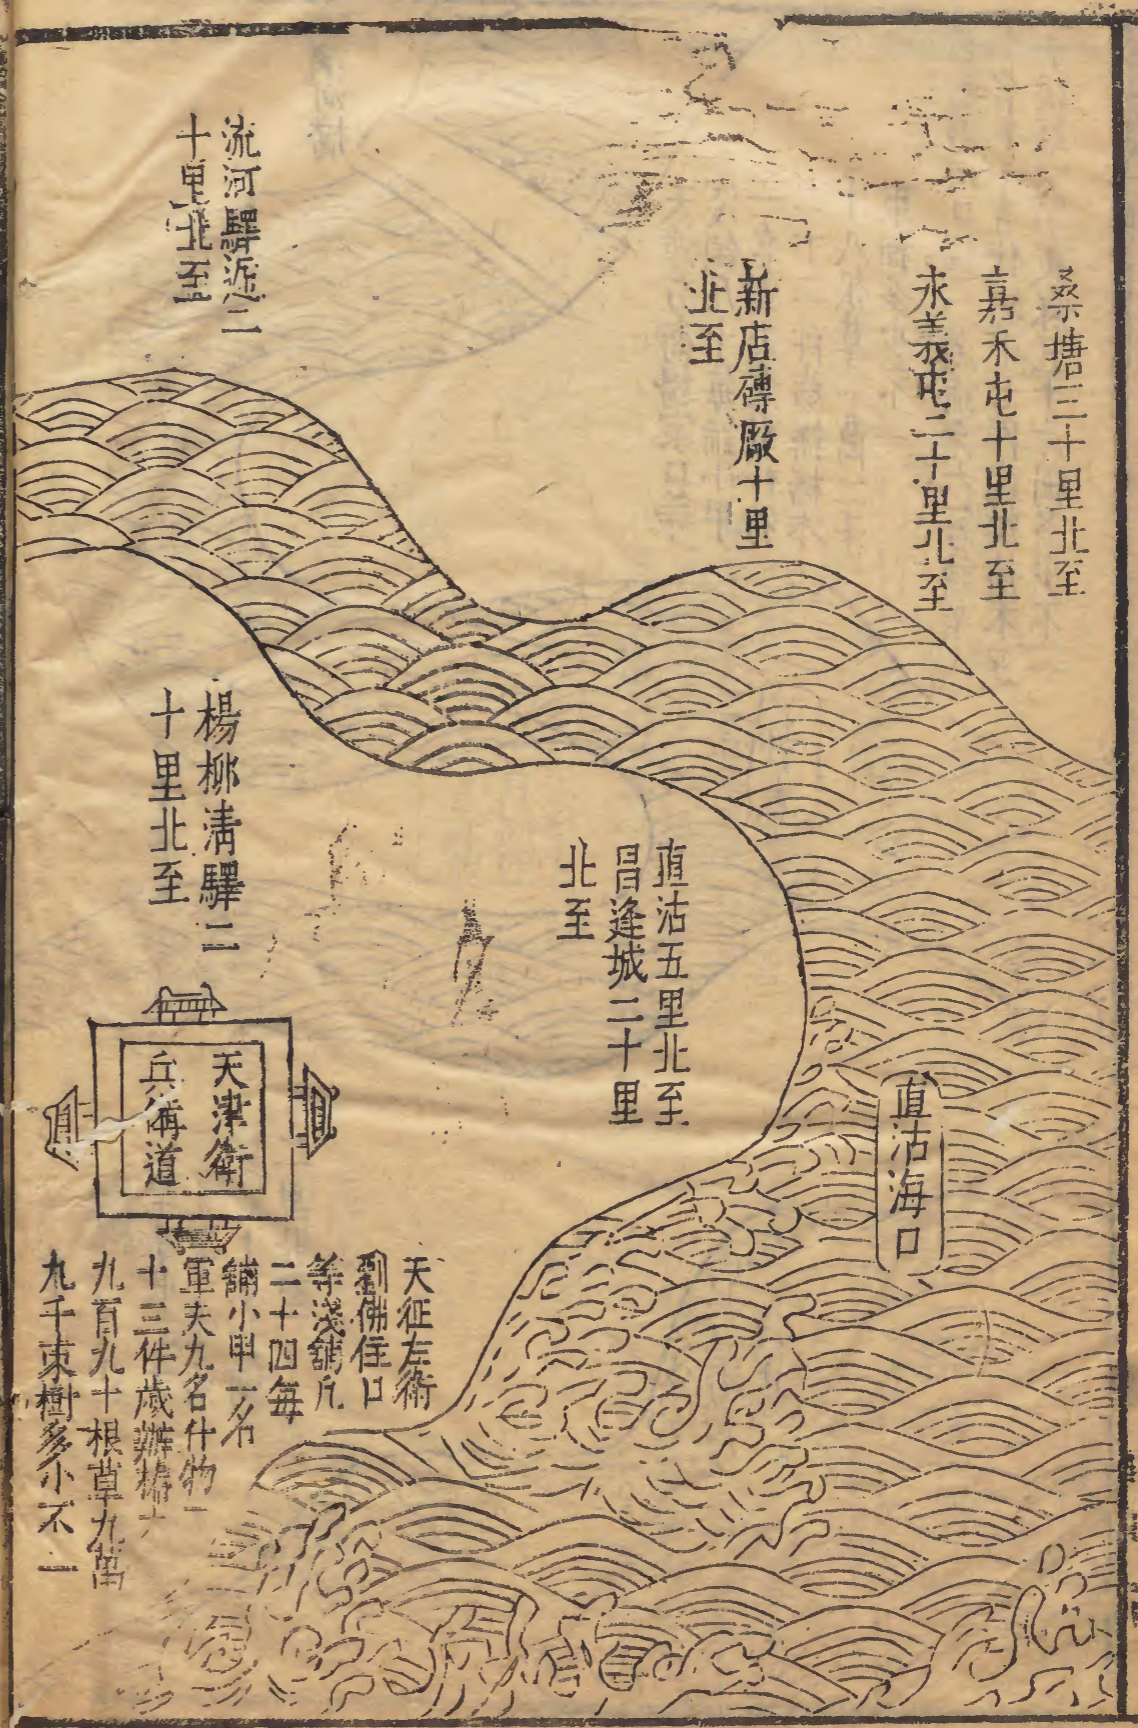 桑塘三十里北至
嘉禾屯十里北至
永義屯二十里北至
新店磚廠十里
北至
流河驛遞二
十里北至
直沽五里北至
昌逢城二十里
北至
楊柳清驛二
十里北至
直沽海口
天津衛
兵備道
天征左衛
劉佛住口
等淺鋪凡
二十四每
鋪小甲一名
軍夫九名什物一
十三件歲辦樁六
九百九十根草九萬
九千束樹多小不一